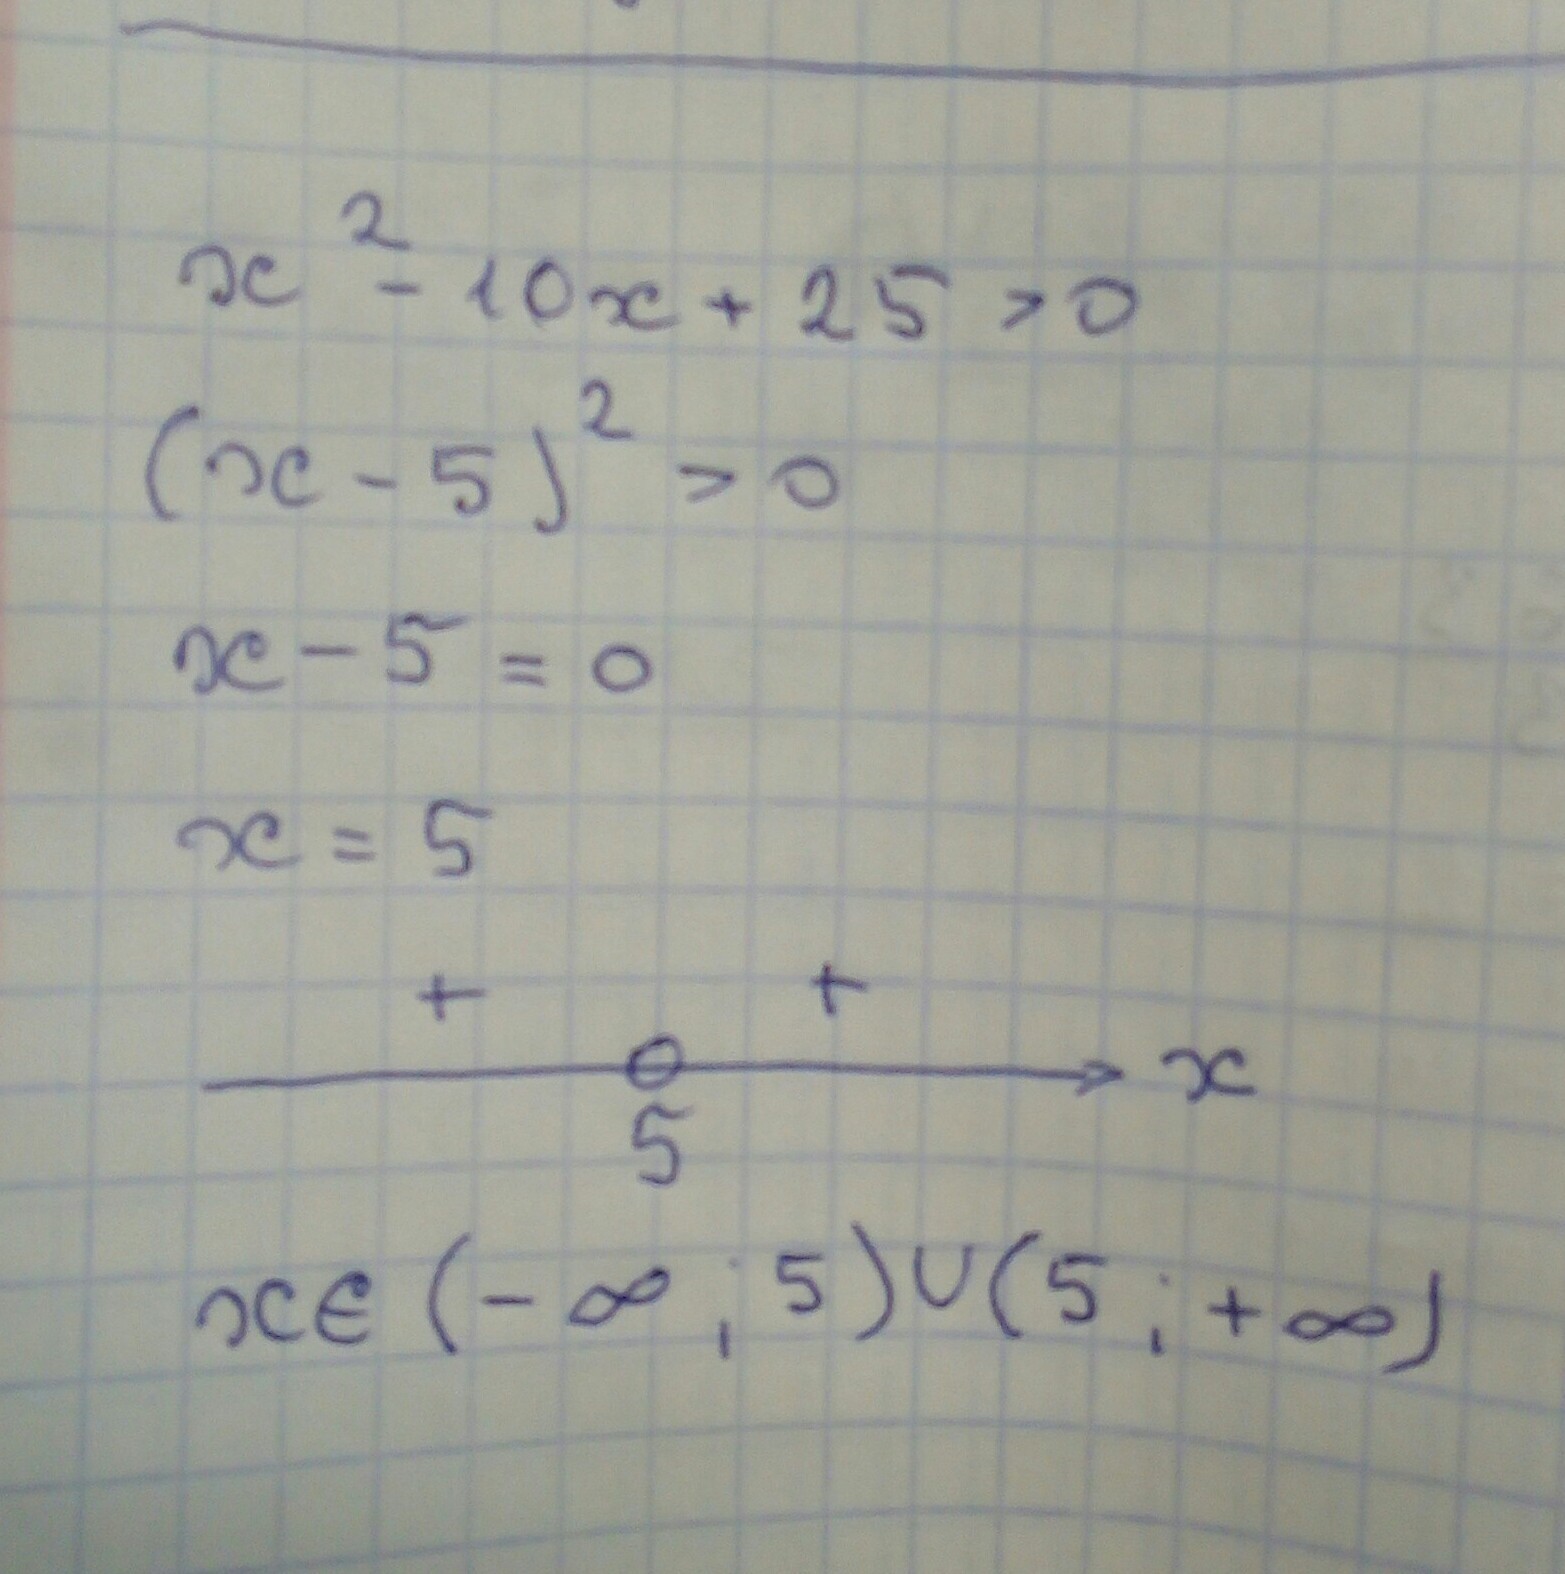 x² - 10x + 25 > 0
(x - 5)² > 0
x - 5 = 0
x = 5
+ +
x
5
x∈(-∞; 5)∪(5; +∞)